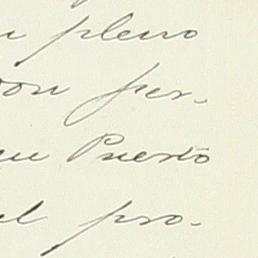 n pleno
con per-
en Puerto
al pro-